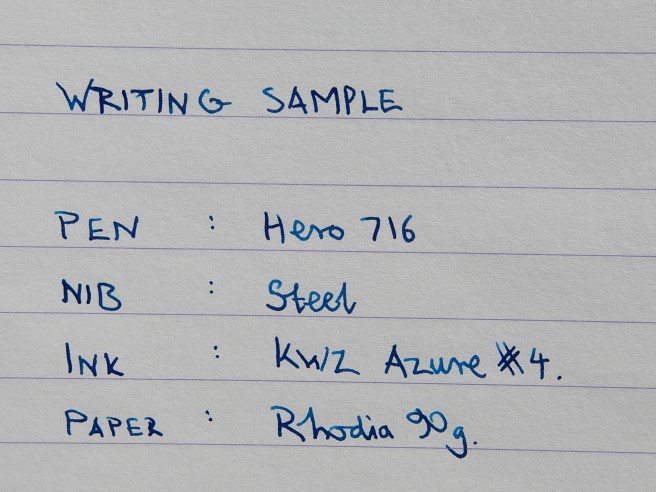 WRITING SAMPLE
PEN : Hero 716
NIB : Steel
INK : KWZ Azure #4.
PAPER : Rhodia 90g.